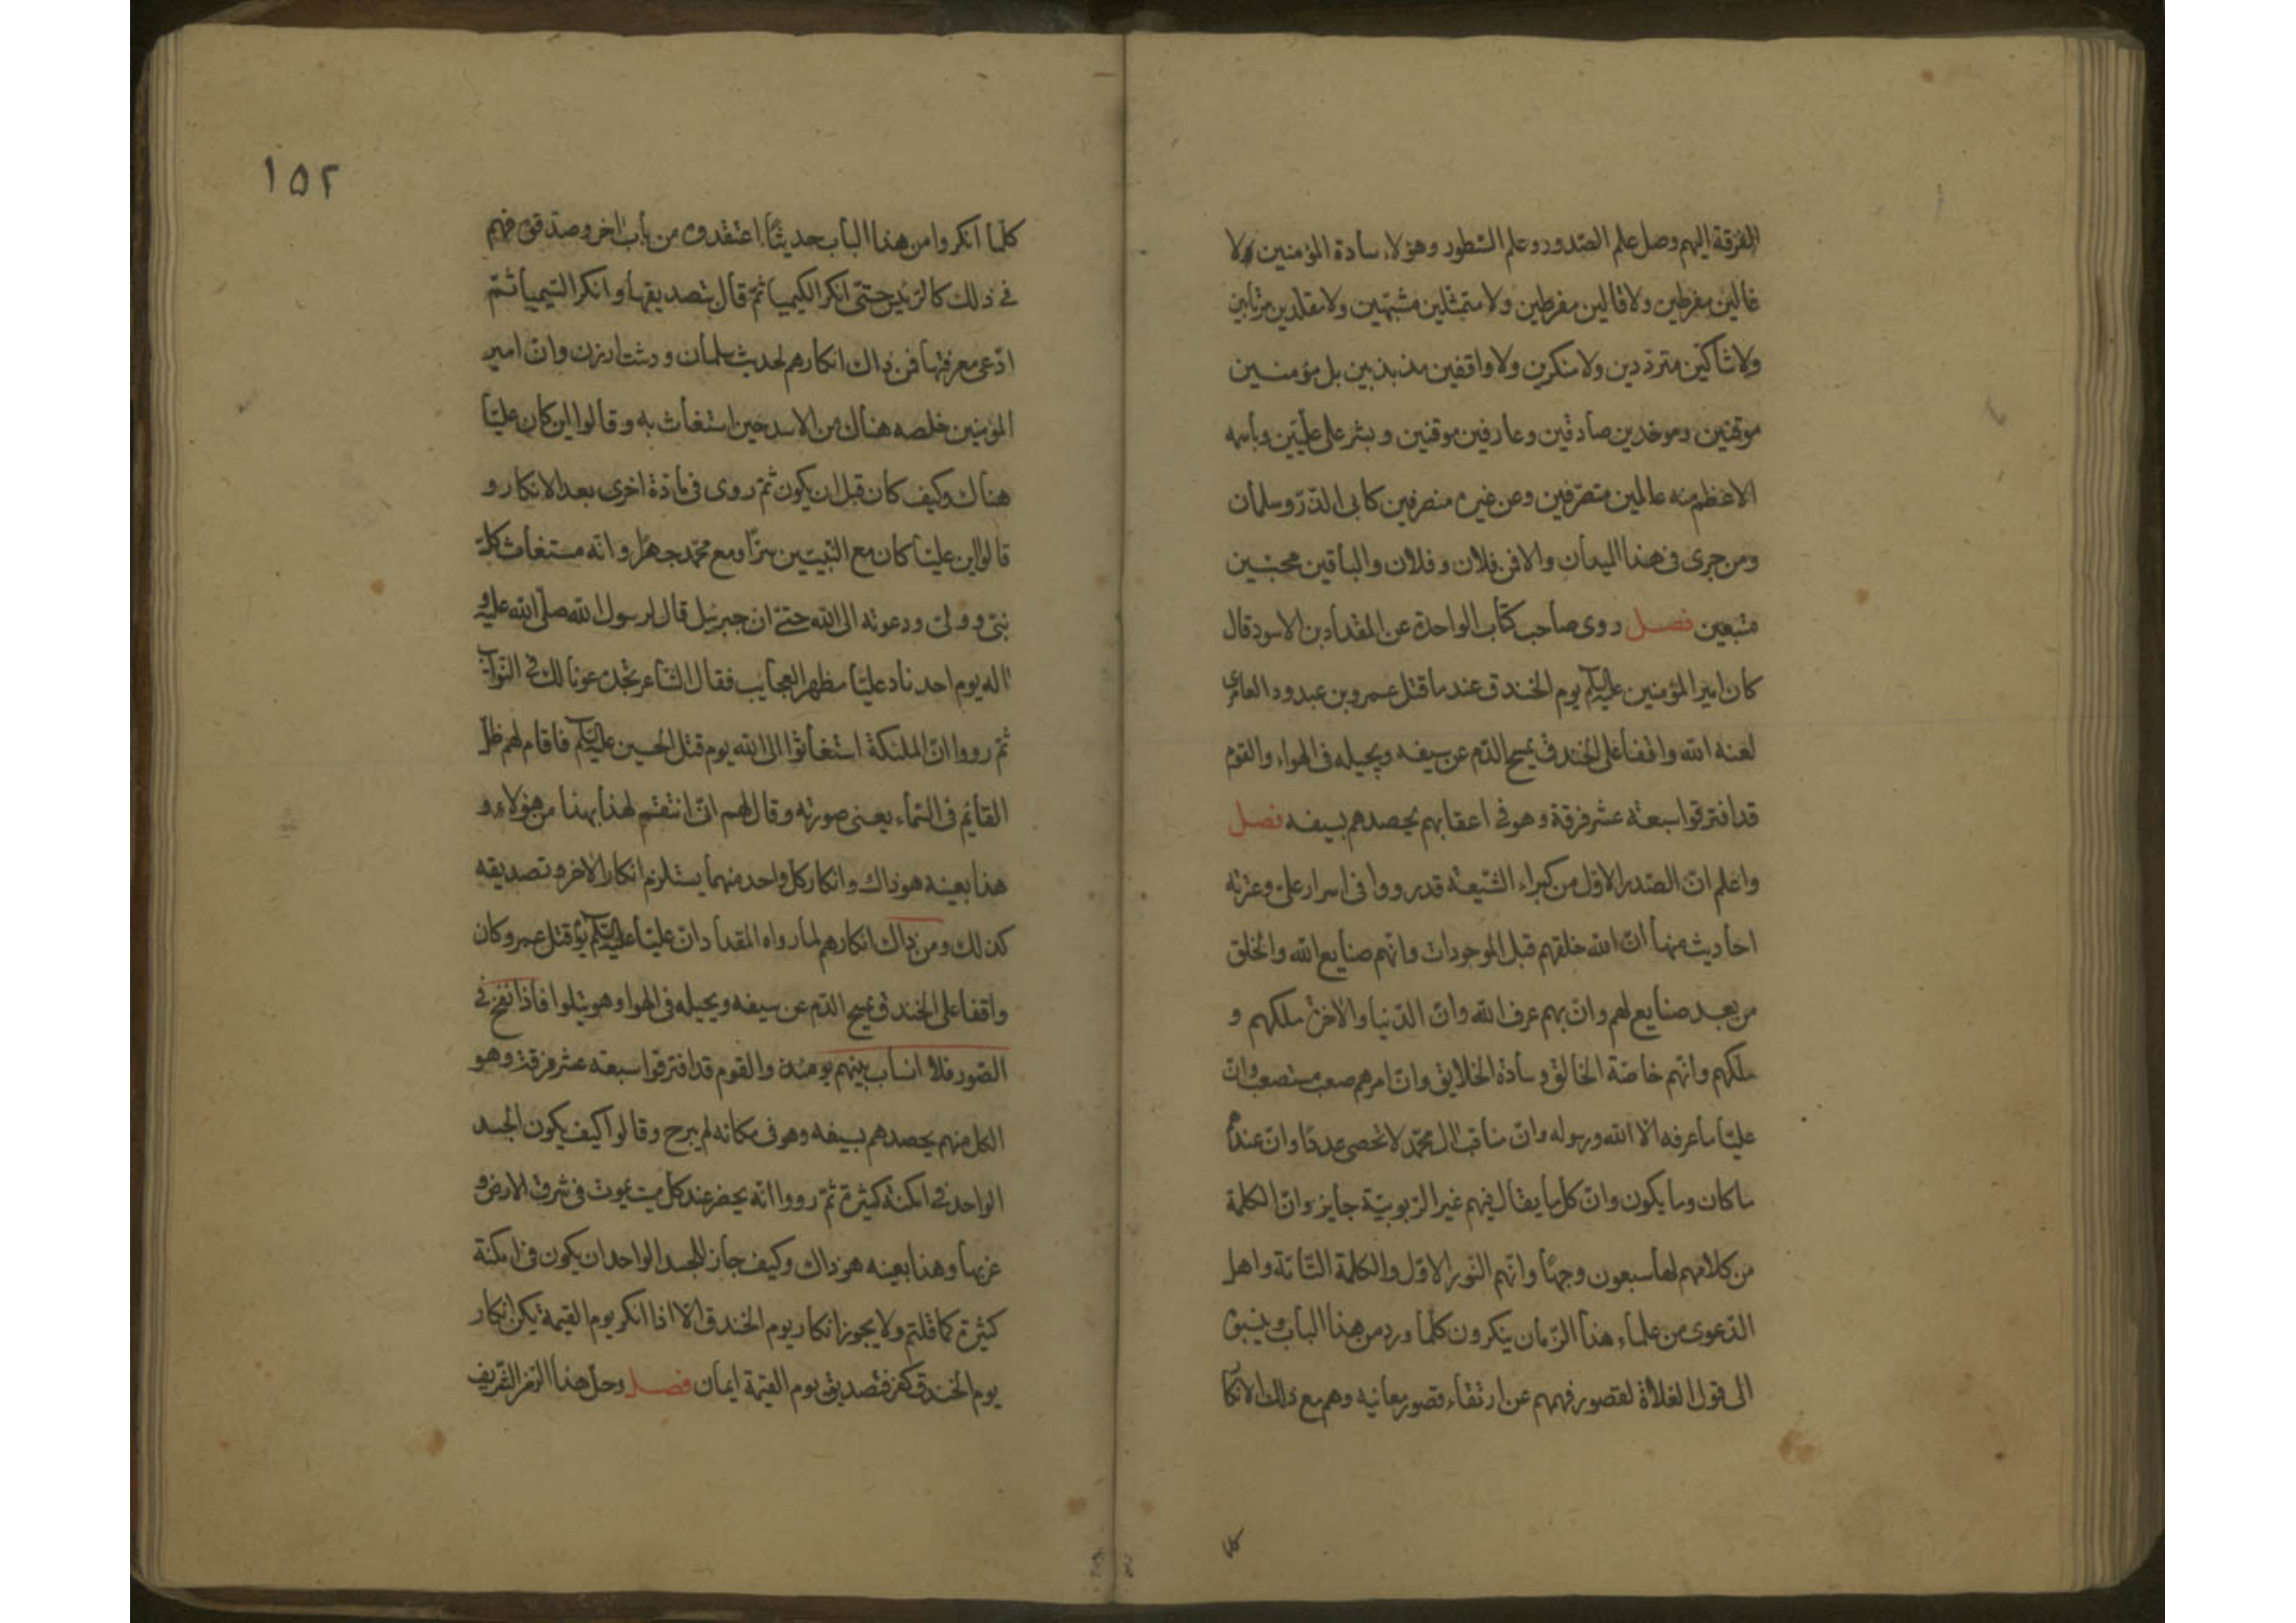 الفرقة اليهم وصل علم الصّدور وعلم السّطور وهؤلاء سادة المؤمنين لا
غالين مفرطين ولا قالين مفرطين ولا متمثلين مشبّهين ولا مقلّدين مرتابين
ولا شاكّين متردّدين ولا منكرين ولا واقفين مذبذبين بل مؤمنين
موقنين وموحّدين صادقين وعارفين موقنين وبسر علي عليّين وباسمه
الاعظم منه عالمين متصرّفين وعن غيره منصرفين كابى الذّر وسلمان
ومن جرى فى هذا الميدان والا فن فلان وفلان والباقين محبّين
متبعين فصل روى صاحب كتاب الواحدة عن المقداد بن الاسود قال
كان امير المؤمنين عليه السلام يوم الخندق عند ما قتل عمرو بن عبدود العامرى
لعنه الله واقفا على الخندق يمسح الدّم عن سيفه ويجيله فى الهواء والقوم
قد افترقوا سبعة عشر فرقة وهو فى اعقابهم يحصدهم بسيفه فصل
واعلم انّ الصّدر الاوّل من كبراء الشّيعة قد رووا فى اسرار على وعترته
احاديث منها انّ الله خلقهم قبل الموجودات وانّهم صنايع الله والخلق
من بعد صنايع لهم وانّ بهم عرف الله وانّ الدّنيا والاخرة ملكهم و
ملكهم وانّهم خاصّة الخالق وسادة الخلايق وانّ امرهم صعب مستصعب وانّ
عليّا ما عرفه الّا الله ورسوله وانّ مناقب ال محمّد لا تحصى عددا وانّ عندهم
ما كان وما يكون وانّ كل ما يقال فيهم غير الرّبوبيّة جايز وانّ الكلمة
من كلامهم لها سبعون وجهًا وانّهم النّور الاوّل والكلمة التّامّة واهل
الدّعوى من علماء هذا الزّمان ينكرون كلّما ورد من هذا الباب وينسبونه
الى قول الغلاة لقصور فهمهم عن ارتقاء قصور معانيه وهم مع ذلك الانكا
كلما
١٥٢
كلّما انكروا من هذا الباب حديثًا اعتقدوه من باب اخر وصدّقوه فهم
فى ذلك كالرئيس حتّى انكر الكيميا ثمّ قال بتصديقها وانكر السّيميا ثمّ
ادّعى معرفتها فمن ذاك انكارهم لحديث سلمان ودشت ارزن وانّ امير
المؤمنين خلصه هناك من الاسد حين استغاث به وقالوا اين كان عليّا
هناك وكيف كان قبل ان يكون ثمّ روى فى مادّة اخرى بعد الانكار و
قالوا ان عليّا كان مع النّبيّين سرًّا ومع محمّد جهرًا وانّه مستغاث كلّ
نبىّ وولىّ ودعوته الى الله حتّى ان جبرئيل قال لرسول الله صلّى الله عليه و
اله يوم احد ناد عليّا مظهر العجايب فقال الشاعر تجده عونا لك فى النّوايب
ثمّ رووا انّ الملئكة استغاثوا الى الله يوم قتل الحسين عليه السلام فاقام لهم ظلّ
القائم فى السّماء يعنى صورته وقال لهم انّى انتقم لهذا بهذا من هؤلاء و
هذا بعينه هو ذاك وانكار كل واحد منهما يستلزم انكار الاخر وتصديقه
كذلك ومن ذاك انكارهم لما رواه المقداد انّ عليّا عليه السلام يوم قتل عمرو كان
واقفا على الخندق يمسح الدّم عن سيفه ويجيله فى الهوا وهو يتلوا فاذا نفخ فى
الصّور فلا انساب بينهم يومئذ والقوم قد افترقوا سبعة عشر فرقة وهو
الكل منهم يحصدهم بسيفه وهو فى مكانه لم يبرح وقالوا كيف يكون الجسد
الواحد فى امكنة كثيرة ثمّ رووا انّه يحضر عند كل ميت يموت فى شرق الارض و
غربها وهذا بعينه هو ذاك وكيف جاز للجسد الواحد ان يكون فى امكنة
كثيرة كما قلتم ولا يجوز انكار يوم الخندق الّا اذا انكر يوم القيمة يكن انكار
يوم الخندق كفر فتصديق يوم القيمة ايمان فصل وحلّ هذا الرّمز الشّريف